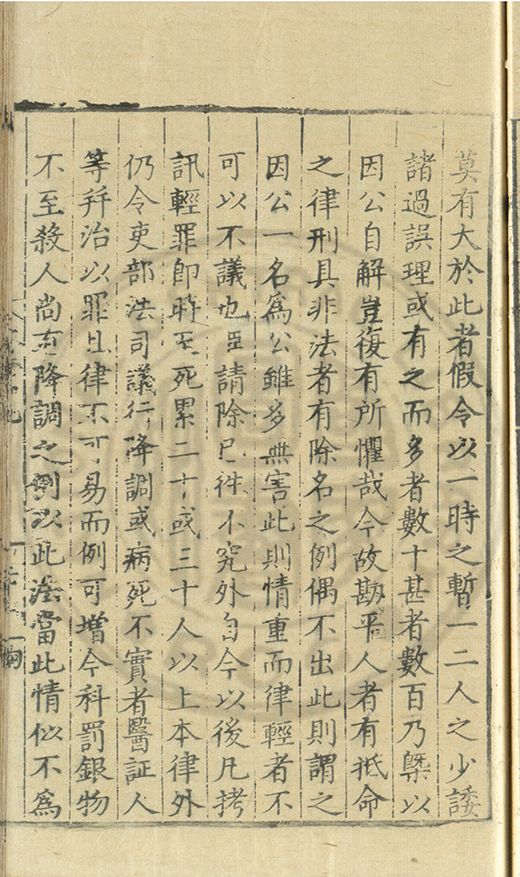 莫有大於此者假令以一時之暫一二人之少諉
諸過誤理或有之而多者數十甚者數百乃槩以
因公自解豈復有所懼哉今故勘平人者有抵命
之律刑具非法者有除名之例偶不出此則謂之
因公一名為公雖多無害此則情重而律輕者不
可以不議也臣請除已徃不究外自今以後凡拷
訊輕罪即時至死累二十或三十人以上本律外
仍令吏部法司議行降調或病死不實者醫証人
等并治以罪且律不可易而例可增今科罰銀物
不至殺人尚有降調之例以此法當此情似不為